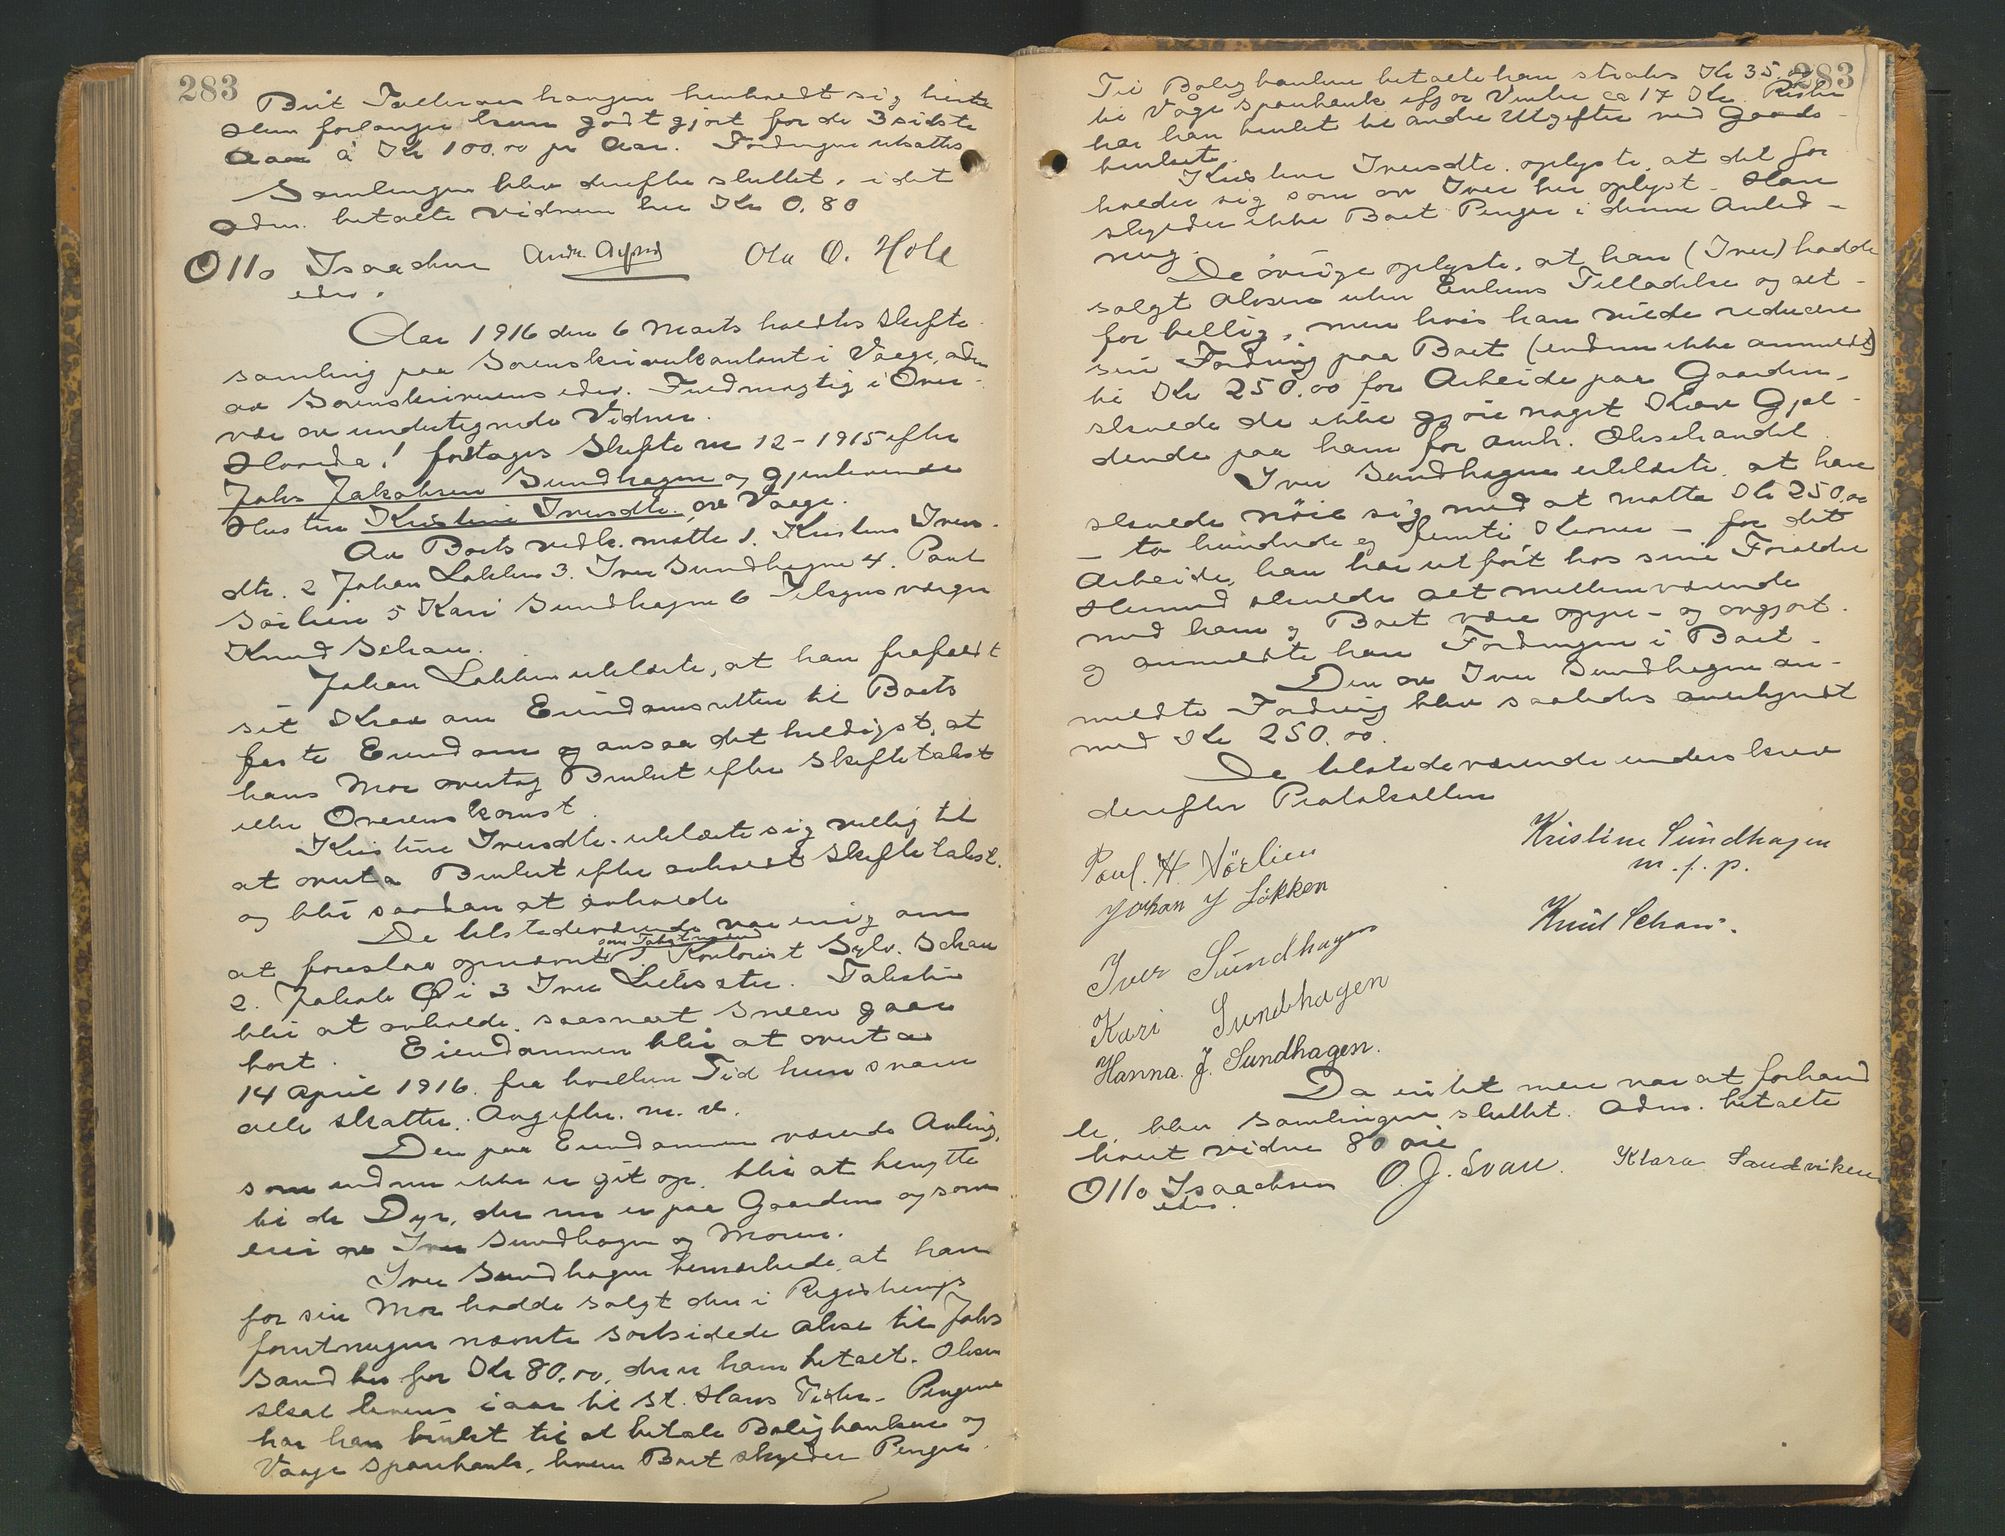 283
Brit Tollevshaugen henholdt sig hertil
Hun forlanger godtgjort for de 3 sidste
Aar á Kr 100.00 pr Aar. Fordringen utsattes
Samlingen blev derefter sluttet, idet
adm. betalte vidnene hver Kr 0.80
Otto Isaachsen Ola O. Hole
edsv.
Aar 1916 den 6 Marts holdtes skifte
samling paa Sorenskriverkontoret i Vaage, adm
av Sorenskriverens edsv. Fuldmægtig i Over-
vær av undertegnede Vidner.
Hvorda! foretages Skifte nr 12-1915 efter
Johs Jakobsen Sundhagen og gjenlevende
Hustru Kristine Iversdtr. av Vaage.
Av Boets vedk. møtte 1. Kristine Ivers-
dtr. 2 Johan Løkken 3. Iver Sundhagen 4. Paul
Sørlien 5 Kari Sundhagen 6 Tilsynsværgen
Knud Schau.
Johan Løkken erklærte, at han frafaldt
sit Krav om Eiendomsretten til Boets
faste Eiendom og ansaa det heldigst, at
hans Mor overtog Bruket efter Skiftetakst
eller Overenskomst.
Kristine Iversdtr. erklærte sig villig til
at overta Bruket efter avholdt Skiftetakst.
og blir saadan at avholde
De tilstedeværende var enig om
som Takstmænd
at foreslaa opnævnt 1. Kontorist Sylv. Schau
2. Jakob Øi 3 Iver . Taksten
blir at avholde, saasnart Sneen gaar
bort. Eiendommen blir at overta
14 April 1916. fra hvilken Tid hun svarer
alle skatter, Avgifter m. v.
Den paa Eiendommen værende Avling,
som endnu ikke er git op, blir at benytte
til de Dyr, der nu er paa Gaarden og som
eies av Iver Sundhagen og Moren.
Iver Sundhagen bemerkede, at han
for sin Mor hadde solgt den i Registrerings
forretningen nævnte sortsidede Okse til Johs
Sandbu for Kr 80.00, der er ham betalt. Oksen
skal leveres iaar til St. Hans Tider. Pengene
har han brukt til at betale Boligbanken og
Vaage Sparebank, hvem Boet skylder Penger.
283
Til Boligbanken betalte han straks Kr 35. og
til Vaage Sparebank ifjor Vinter ca 17 Kr. Resten
har han brukt til andre Utgifter ved Gaards-
bruket.
Kristine Iversdtr. oplyste, at det for
holder sig som av Iver her oplyst. Han
skylder ikke Boet Penger i denne Anled-
ning.
De øvrige oplyste, at han (Iver) hadde
solgt Oksen uten Enkens Tilladelse og alt-
for billig, men hvis han vilde reducere
sin Fordring paa Boet (endnu ikke anmeldt)
til Kr 250.00 for Arbeide paa Gaarden,
skulde de ikke gjøre noget Krav Gjæl-
dende paa ham for amh. Oksehandel.
Iver Sundhagen erklærte, at han
skulde nøie sig med at motta Kr 250.00
- to hundrede og femti Kroner - for det
Arbeide, han har utført hos sine Forældre
Hermed skulde alt mellemværende
med ham og Boet være oppe- og avgjort.
og anmeldte han Fordringen i Boet.
Den av Iver Sundhagen an-
meldte Fordring blev saaledes anerkjendt
med Kr 250.00.
De tilstedeværende underskrev
derefter Protokollen
Kristine Sundhagen
m. f. p.
Paul. H. Sörlien
Johan J Løkken
Knut Schau.
Iver Sundhagen
Kari Sundhagen
Hanna. J. Sundhagen.
Da intet mere var at forhand
le, blev samlingen sluttet. Adm. betalte
hvert vidne 80 øre
Otto Isaachsen O. J. Svare. Klara Sandviken
edsv.